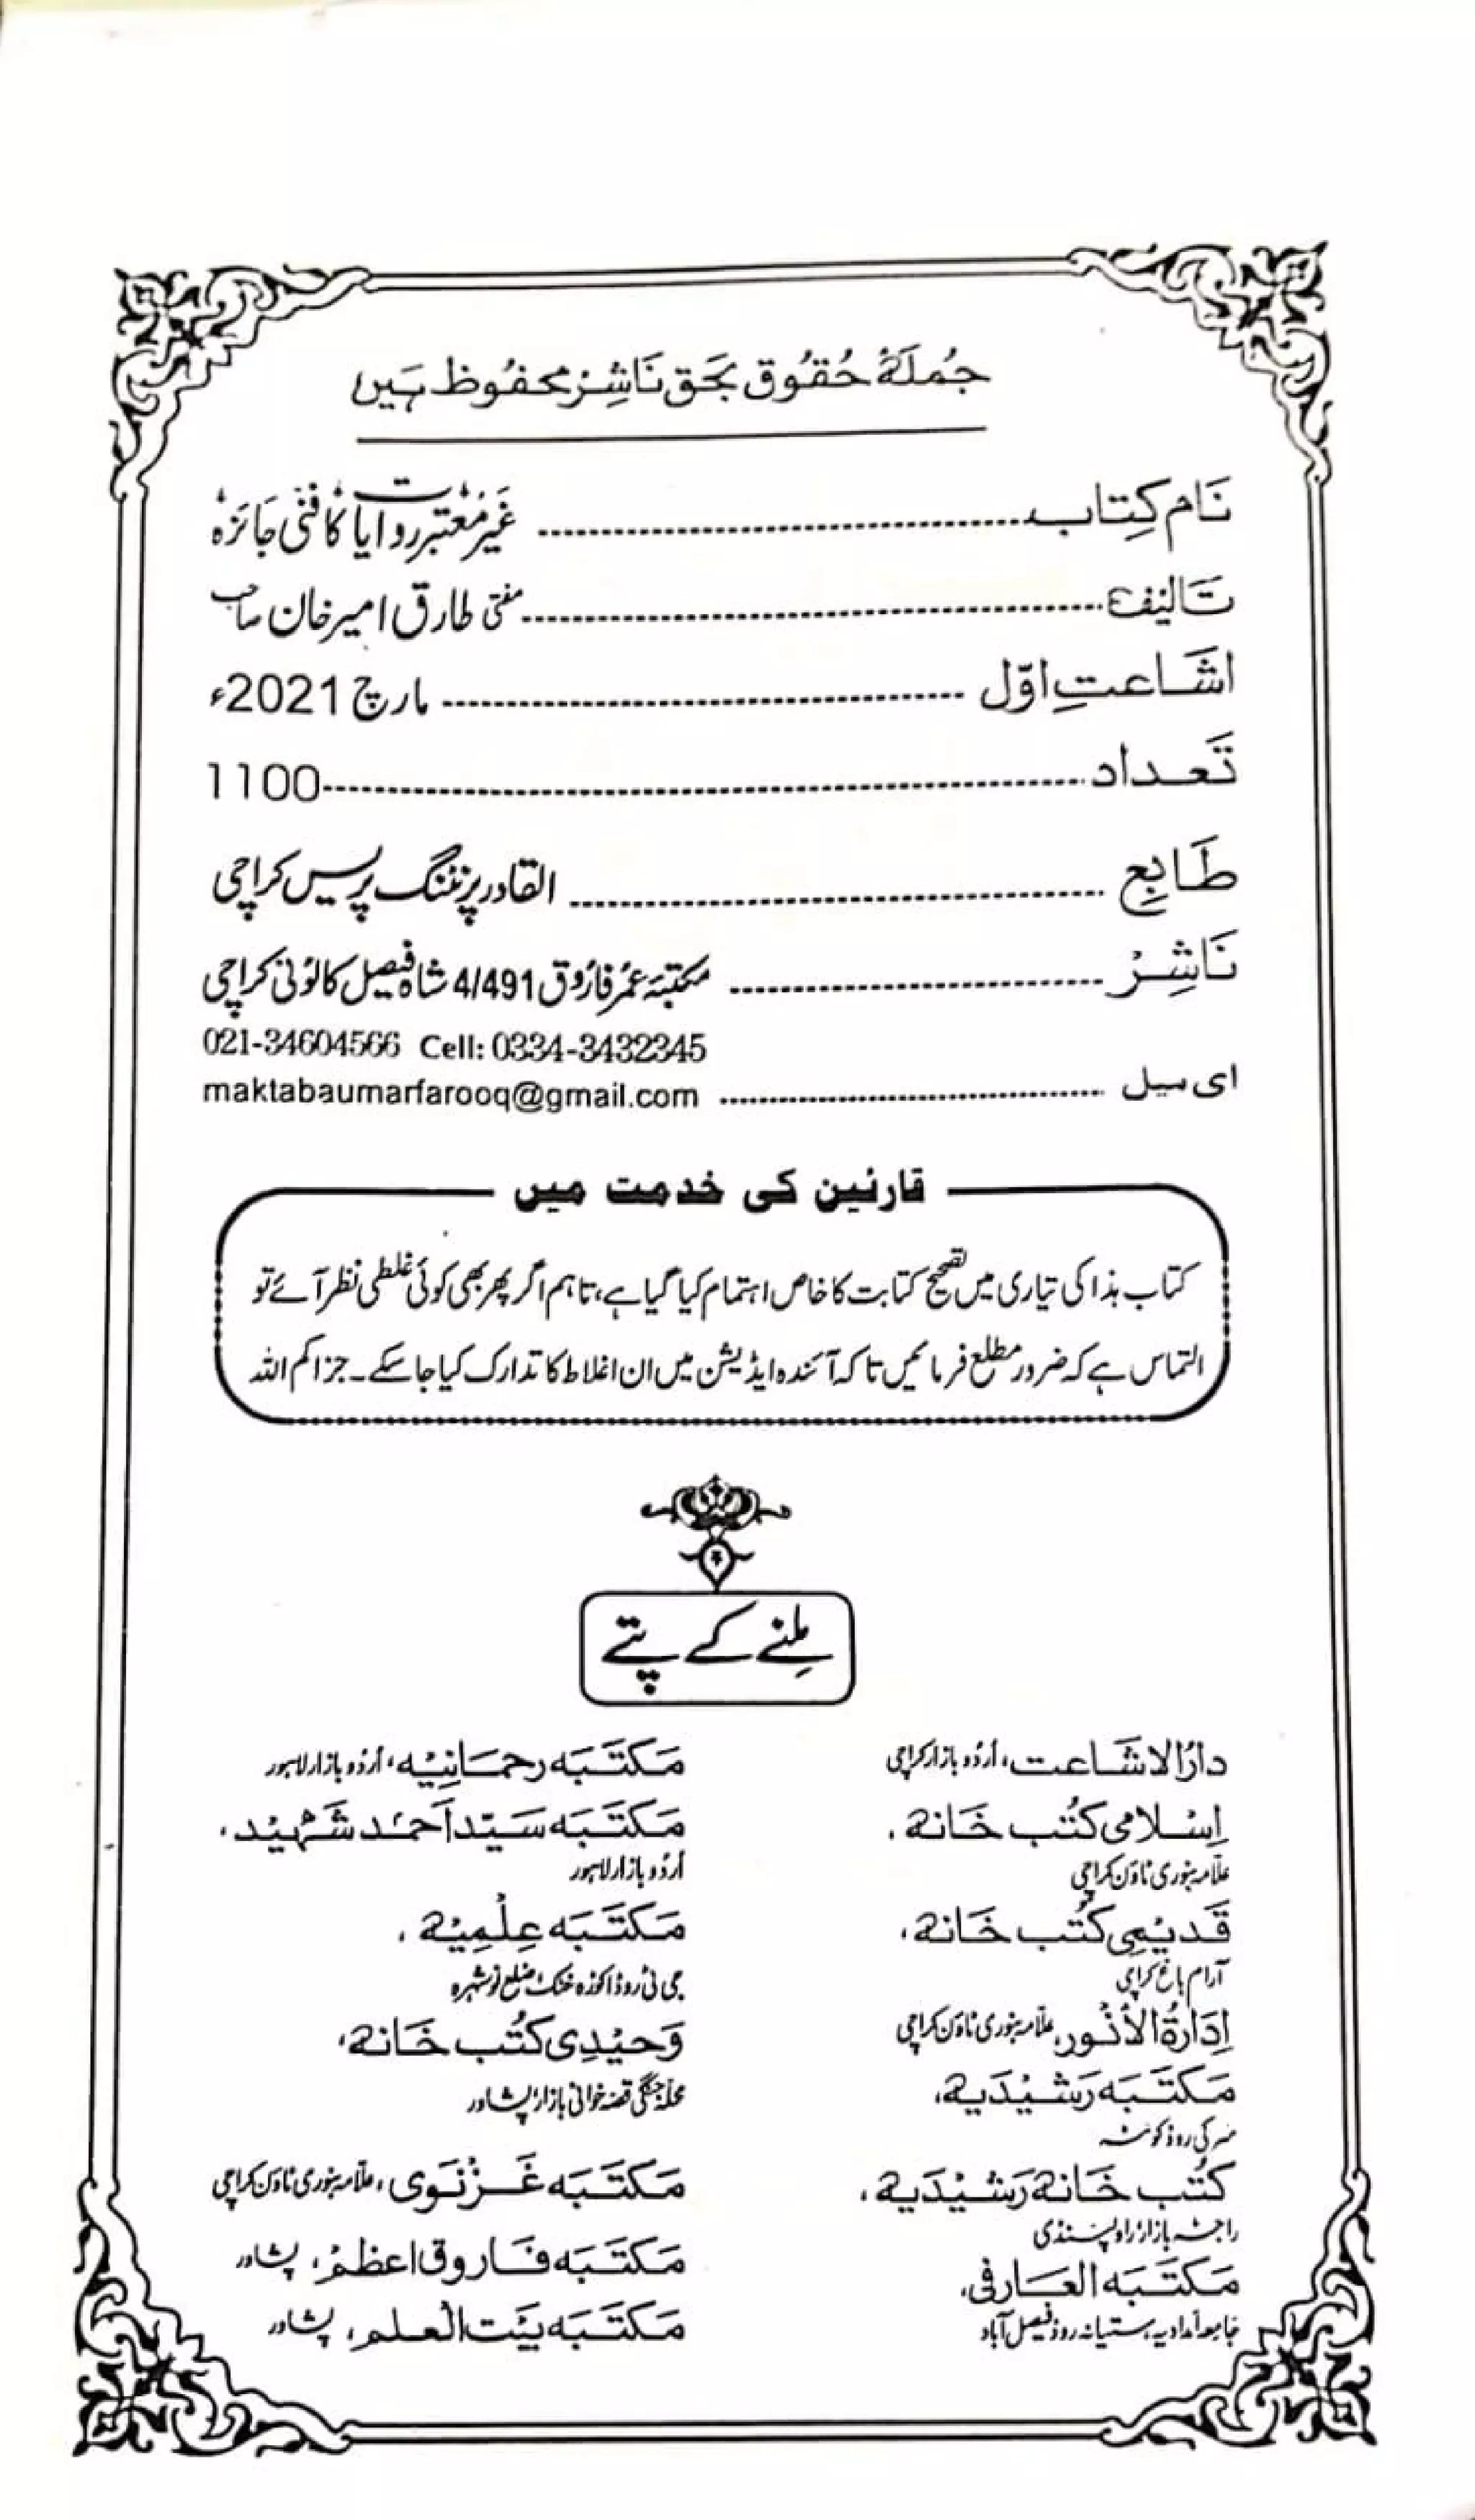 جُملہ حُقُوق بحَق نَاشِر محفُوظ ہَیں
نَام کِتاب ........ غیر معتبر روایات کا فنی جائزہ
تَالیف ........ مفتی طارق امیر خان صاحب
اشَاعتِ اوّل ........ مارچ 2021ء
تَعداد ........ 1100
طَابِع ........ القادر پرنٹنگ پریس کراچی
نَاشِر ........ مکتبہ عمر فاروق 4/491 شاہ فیصل کالونی کراچی
021-34604566 Cell: 0334-3432345
ای میل ........ maktabaumarfarooq@gmail.com
قارئین کی خدمت میں
کتاب ہذا کی تیاری میں تصحیح کتابت کا خاص اہتمام کیا گیا ہے، تاہم اگر پھر بھی کوئی غلطی نظر آئے تو
التماس ہے کہ ضرور مطلع فرمائیں تاکہ آئندہ ایڈیشن میں ان اغلاط کا تدارک کیا جاسکے۔ جزاکم اللہ
مِلنے کے پتے
دارُالاشَاعت، اُردُو بازار کراچی
اِسْلامی کُتب خَانہ،
علّامہ بنوری ٹاؤن کراچی
قَدیمِی کُتب خَانہ،
آرام باغ کراچی
اِدَارۃُ الأنُور، علّامہ بنوری ٹاؤن کراچی
مَکتَبَہ رَشِیْدَیہ،
سرکی روڈ کوئٹہ
کُتب خَانہ رَشِیْدَیہ،
راجہ بازار، راولپنڈی
مَکتَبَہ العَارفی،
جامعہ امدادیہ، ستیانہ روڈ فیصل آباد
مَکتَبَہ رحمَانِیَہ، اُردُو بازار لاہور
مَکتَبَہ سَیّد اَحمَد شَہِید،
اُردُو بازار لاہور
مَکتَبَہ عِلْمِیَہ،
جی ٹی روڈ اکوڑہ خٹک، ضلع نوشہرہ
وَحِیْدِی کُتب خَانہ،
محلہ جنگی قصہ خوانی بازار، پشاور
مَکتَبَہ غَزنَوی، علّامہ بنوری ٹاؤن کراچی
مَکتَبَہ فَاروق اعظم، پشاور
مَکتَبَہ بَیْت العلم، پشاور